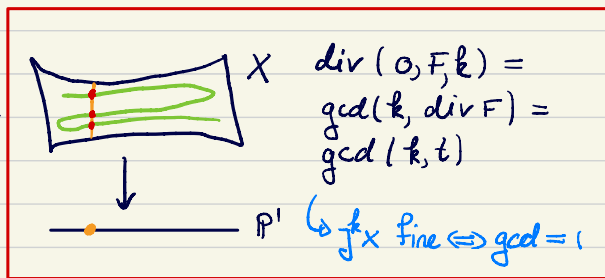 X
div (0, F, k) =
gcd (k, div F) =
gcd (k, t)
P¹
↳ J^k X fine ⇔ gcd = 1